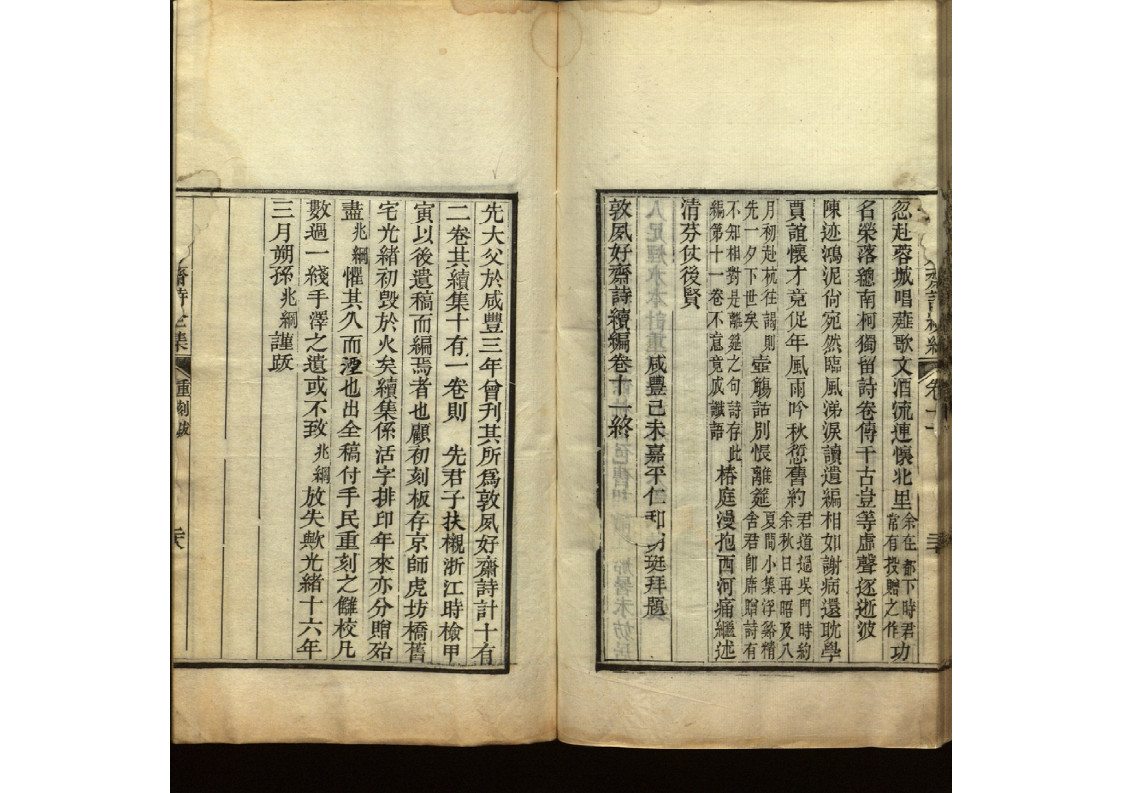 忽赴蓉城唱薤歌文酒流連懷北里余在都下時君常有投贈之作功
名榮落總南柯獨留詩卷傳千古豈等虛聲逐逝波
陳迹鴻泥尙宛然臨風涕淚讀遺編相如謝病還耽學
賈誼懷才竟促年風雨吟秋愆舊約君道過吳門時約余秋日再晤及八
月初赴杭往謁則先一夕下世矣壺觴話別悵離筵夏間小集浮谿精舍君卽席贈詩有
不知相對是離筵之句詩存此編第十一卷不意竟成讖語椿庭漫抱西河痛繼述
清芬仗後賢
咸豐己未嘉平仁和 珽拜題
敦夙好齋詩續編卷十一終
齋詩續編
卷十一
先大父於咸豐三年曾刊其所爲敦夙好齋詩計十有
二卷其續集十有一卷則 先君子扶櫬浙江時檢甲
寅以後遺稿而編焉者也顧初刻板存京師虎坊橋舊
宅光緒初毀於火矣續集係活字排印年來亦分贈殆
盡兆綱懼其久而湮也出全稿付手民重刻之雠校凡
數過一綫手澤之遺或不致兆綱放失歟光緒十六年
三月朔孫兆綱謹跋
齋詩全集
重刻跋